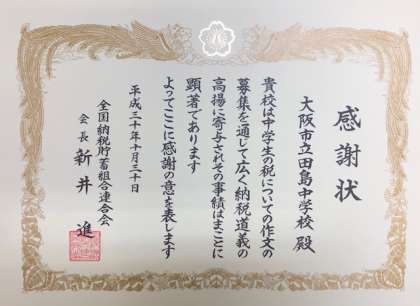 感謝状
大阪市立田島中学校 殿
貴校は中学生の税についての作文の
募集を通じて広く納税道義の
高揚に寄与されその事績はまことに
顕著であります
よってここに感謝の意を表します
平成三十年十月三十日
全国納税貯蓄組合連合会
会長 新井 進